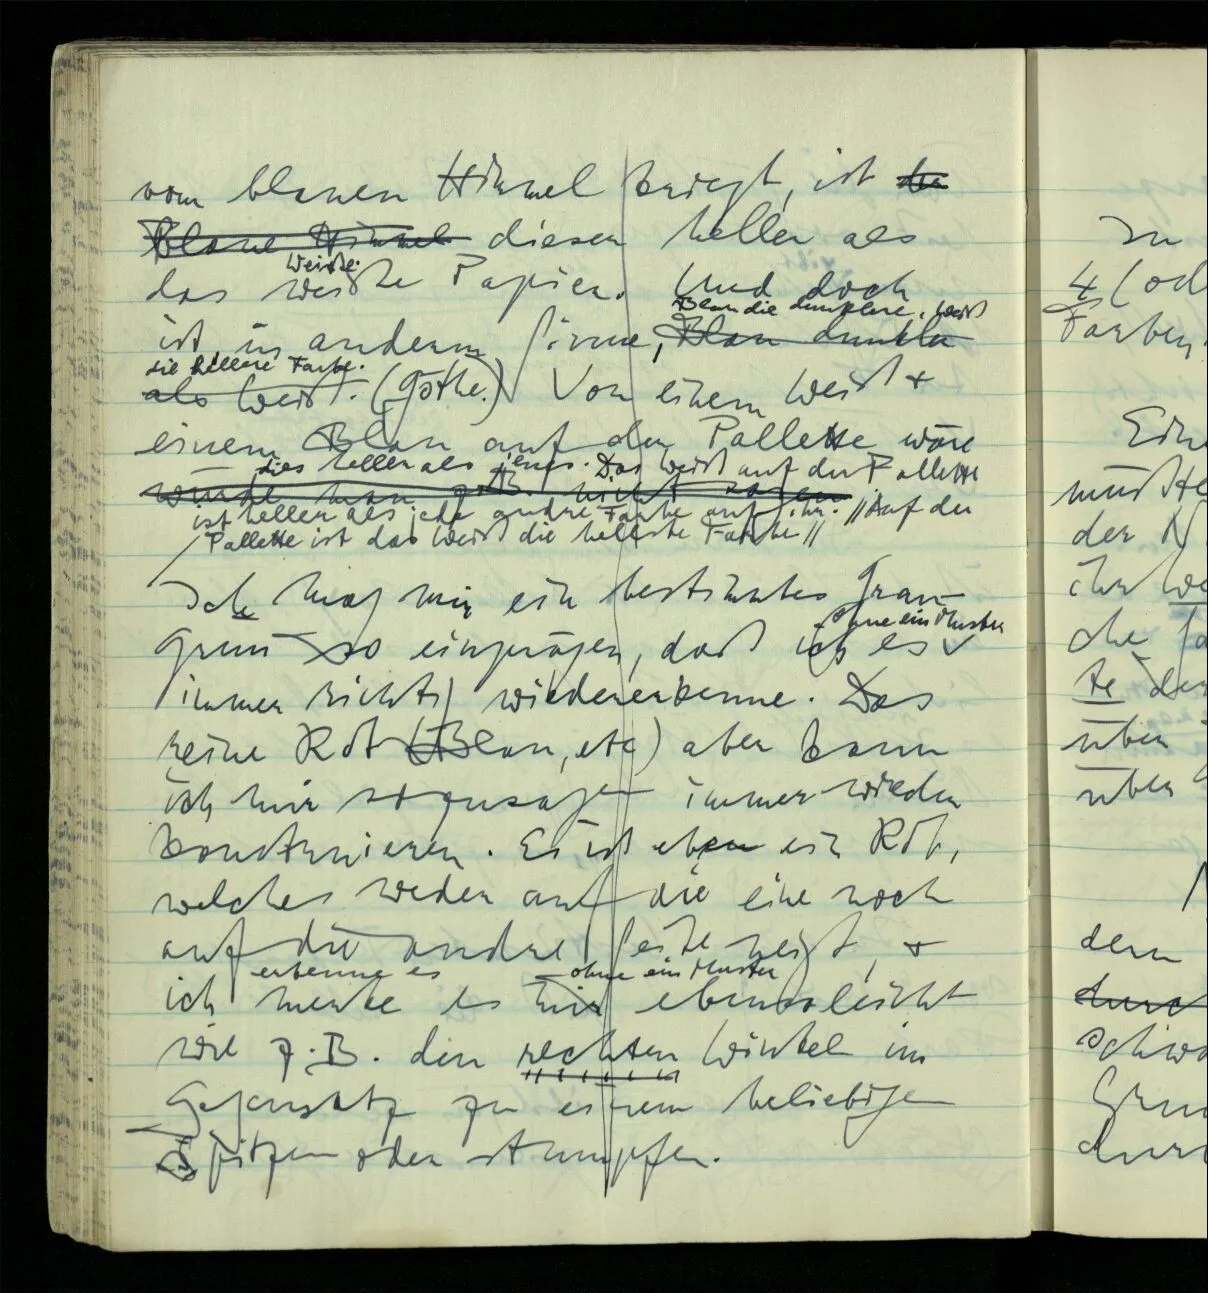 vom blauen Himmel kriegt, ist der
Blaue Himmel dieser heller als
weiße
das weiße Papier. Und doch
Blau die dunklere, Weiß
ist, in anderm Sinne, Blau dunkler
die hellere Farbe.
als Weiß. (Göthe.) Von einem Weiß +
einem Blau auf der Pallette wäre
dies heller als jenes. Das Weiß auf der Pallette
würde man z.B. nicht sagen
ist heller als jede andre Farbe auf ihr. // Auf der
Pallette ist das Weiß die hellste Farbe //
Ich mag mir ein bestimmtes Grau-
ohne ein Muster
grün so einprägen, daß ich es
immer richtig wiedererkenne. Das
reine Rot (Blau, etc) aber kann
ich mir sozusagen immer wieder
konstruieren. Es ist eben ein Rot,
welches weder auf die eine noch
auf die andre Seite neigt, +
erkenne es ohne ein Muster
ich merke es mir ebensoleicht
wie z.B. den rechten Winkel im
Gegensatz zu einem beliebigen
Spitzen oder stumpfen.
In
4 (od
Farben
Eine
müßte
der N
ihr We
che Fa
te der
über
über
dem
durch
schwa
Grun
durc